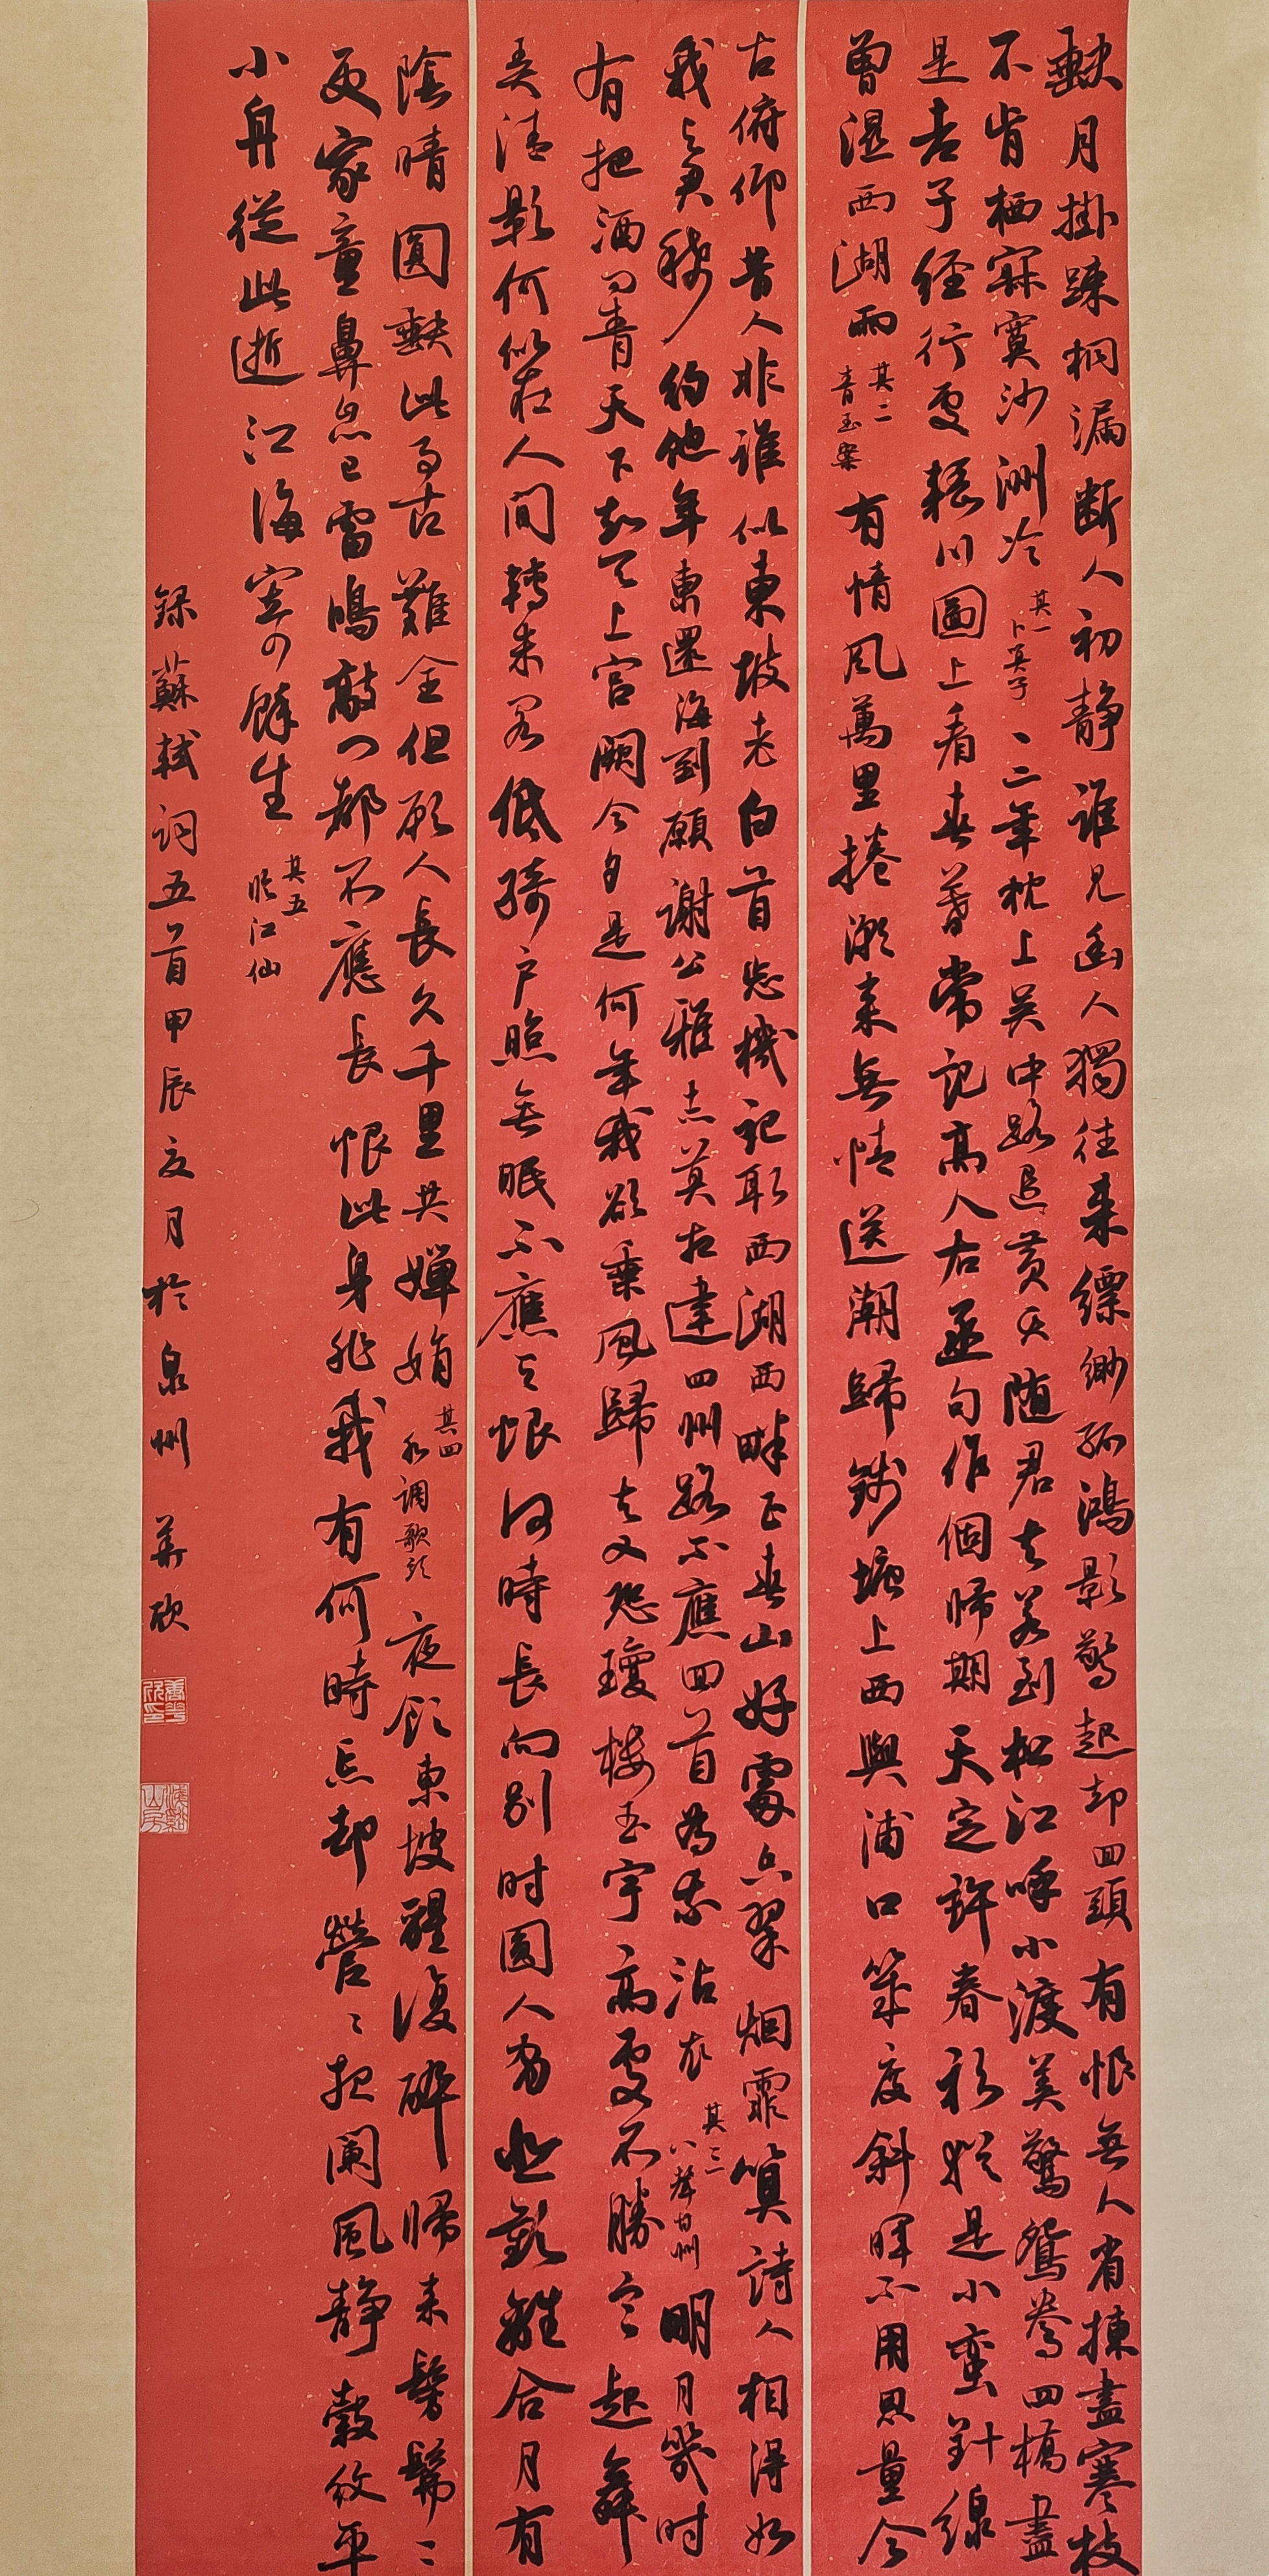 缺月掛疎桐漏断人初静誰見幽人獨往来缥缈孤鴻影驚起却回頭有恨無人省揀盡寒枝
不肯栖寂寞沙洲冷 其一 卜算子 三年枕上吴中路遣黄犬随君去若到松江呼小渡莫驚鴛鷺四橋盡
是老子經行處輞川圖上看春暮常記高人右丞句作個歸期天定許春衫猶是小蠻針線
曾濕西湖雨 其二 青玉案 有情風萬里捲潮来無情送潮歸錢塘上西與浦口幾度斜暉不用思量今
古俯仰昔人非誰似東坡老白首忘機記取西湖西畔正春山好處空翠烟霏算詩人相得如
我與君稀約他年東還海到願謝公雅志莫相違西州路不應回首為我沾衣 其三 八聲甘州 明月幾時
有把酒问青天不知天上宫闕今夕是何年我欲乘風歸去又恐瓊楼玉宇高處不勝寒起舞
弄清影何似在人間轉朱閣低綺户照無眠不應有恨何時長向别时圓人有悲歡離合月有
陰晴圓缺此事古難全但願人長久千里共嬋娟 其四 水調歌頭 夜飲東坡醒復醉歸来髣髴三
更家童鼻息已雷鳴敲门都不應長恨此身非我有何時忘却營〻夜闌風静縠紋平
小舟從此逝江海寄餘生 其五 臨江仙
錄蘇軾詞五首甲辰夏月於泉州 華欣